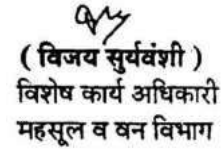 ( विजय सुर्यवंशी )
विशेष कार्य अधिकारी
महसूल व वन विभाग